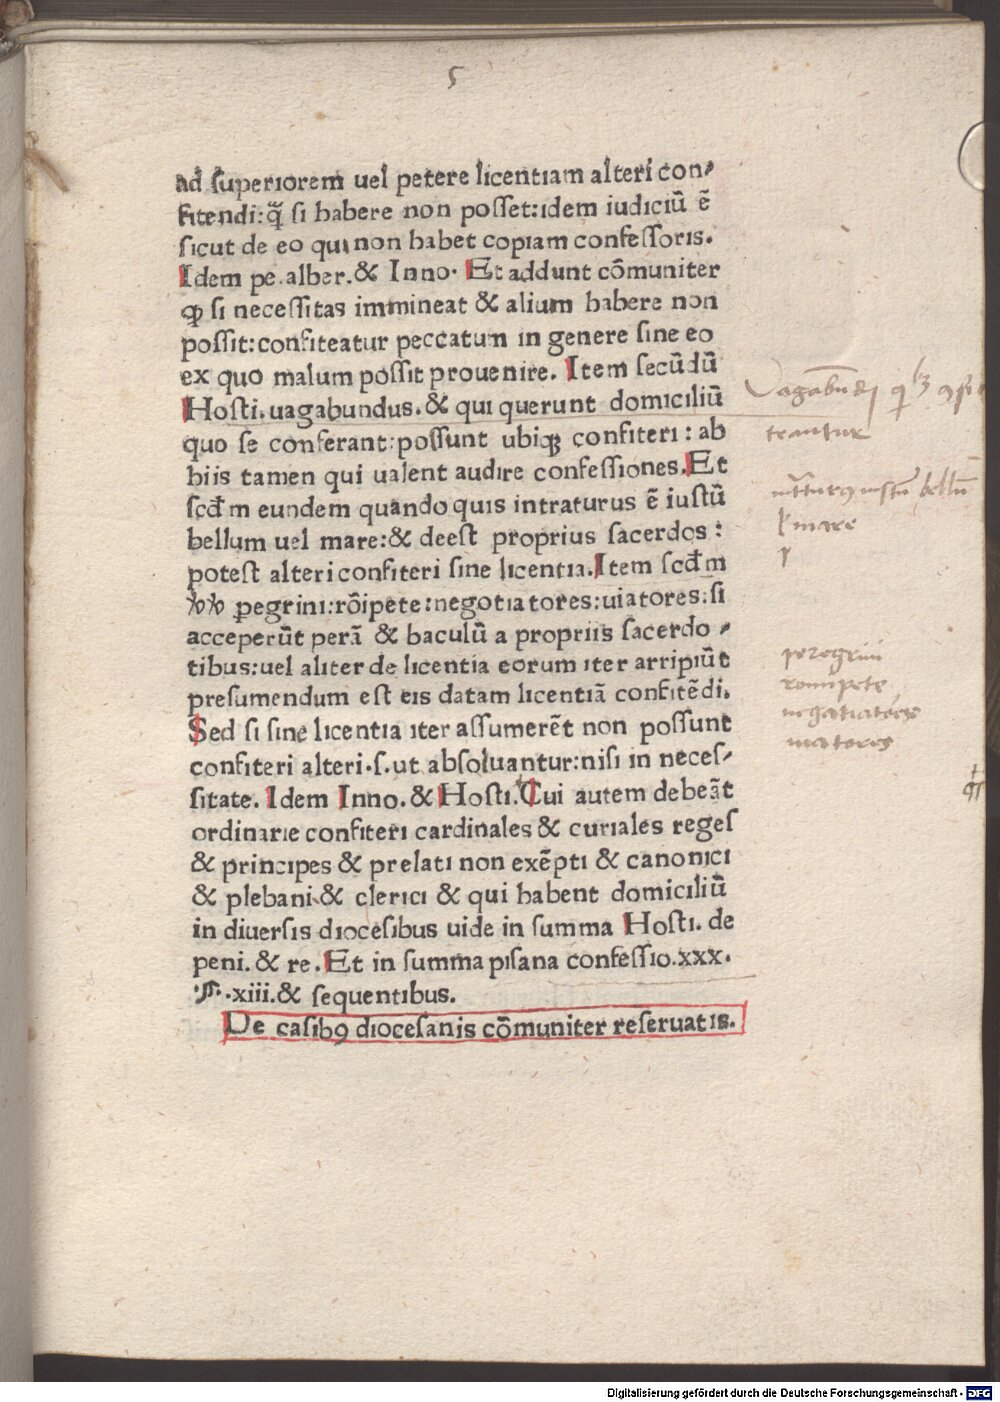 5
ad superiorem uel petere licentiam alteri con⸗
fitendi:q̃ si habere non posset:idem iudiciū ē
sicut de eo qui non habet copiam confessoris.
Idem pe.alber.& Inno. Et addunt cōmuniter
ꝙ si necessitas immineat & alium habere non
possit:confiteatur peccatum in genere sine eo
ex quo malum possit prouenire. Item secūdū
Hosti.uagabundus.& qui querunt domiciliū
quo se conferant:possunt ubiqꝫ confiteri: ab
hiis tamen qui ualent audire confessiones.Et
scđm eundem quando quis intraturus ē iustū
bellum uel mare:& deest proprius sacerdos:
potest alteri confiteri sine licentia.Item scđm
ꝑegrini:rōipete:negotiatores:uiatores:si
acceperūt perā & baculū a propriis sacerdo⸗
tibus:uel aliter de licentia eorum iter arripiūt
presumendum est eis datam licentiā confitēdi.
Sed si sine licentia iter assumerēt non possunt
confiteri alteri.s.ut absoluantur:nisi in neces⸗
sitate. Idem Inno.& Hosti.Cui autem debeāt
ordinarie confiteri cardinales & curiales reges
& principes & prelati non exēpti & canonici
& plebani & clerici & qui habent domiciliū
in diuersis diocesibus uide in summa Hosti. de
peni.& re.Et in summa pisana confessio.xxx.
.xiii.& sequentibus.
De casibꝰ diocesanis cōmuniter reseruatis.
bellū
mare
peregrini
romipete
negatiatores
uiatores
Digitalisierung gefördert durch die Deutsche Forschungsgemeinschaft - DFG